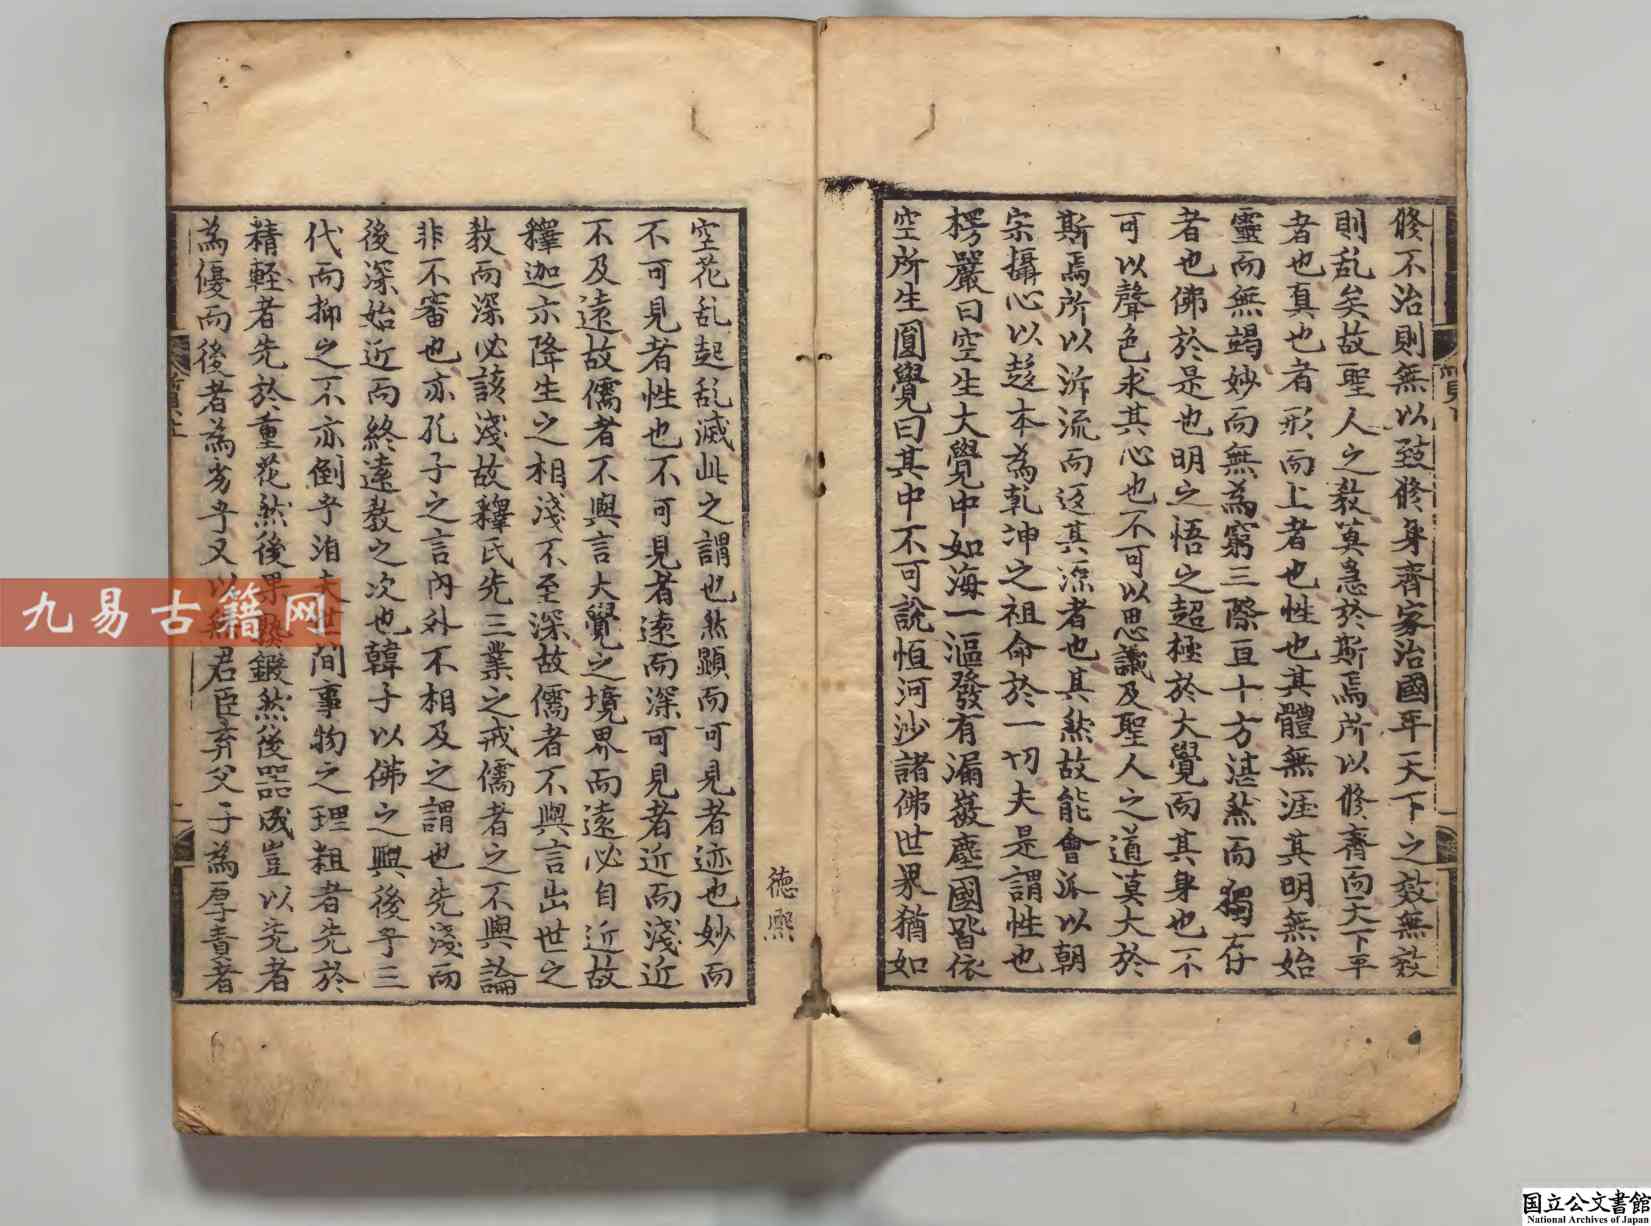 修不治則無以致修身齊家治國平天下之效無效
則乱矣故聖人之教莫急於斯焉所以修齊而天下平
者也真也者形而上者也性也其體無涯其明無始
靈而無竭妙而無為窮三際亘十方湛然而獨存
者也佛於是也明之悟之超極於大覺而其身也不
可以聲色求其心也不可以思議及聖人之道莫大於
斯焉所以泝流而返其源者也其然故能會派以朝
宗攝心以趍本為乾坤之祖命於一切夫是謂性也
楞嚴曰空生大覺中如海一漚發有漏㣲塵國皆依
空所生圓覺曰其中不可說恒河沙諸佛世界猶如
空花乱起乱滅此之謂也然顯而可見者迹也妙而
不可見者性也不可見者遠而深可見者近而淺近
不及遠故儒者不與言大覺之境界而遠必自近故
釋迦亦降生之相淺不至深故儒者不與言出世之
教而深必該淺故釋氏先三業之戒儒者之不與論
非不審也亦孔子之言內外不相及之謂也先淺而
後深始近而終遠教之次也韓子以佛之興後乎三
代而抑之不亦倒乎洎夫世間事物之理粗者先於
精輕者先於重花然後果鍛然後器成豈以先者
為優而後者為劣乎又以無君臣弃父子為厚責者
德熙
九易古籍网
国立公文書館
National Archives of Japan